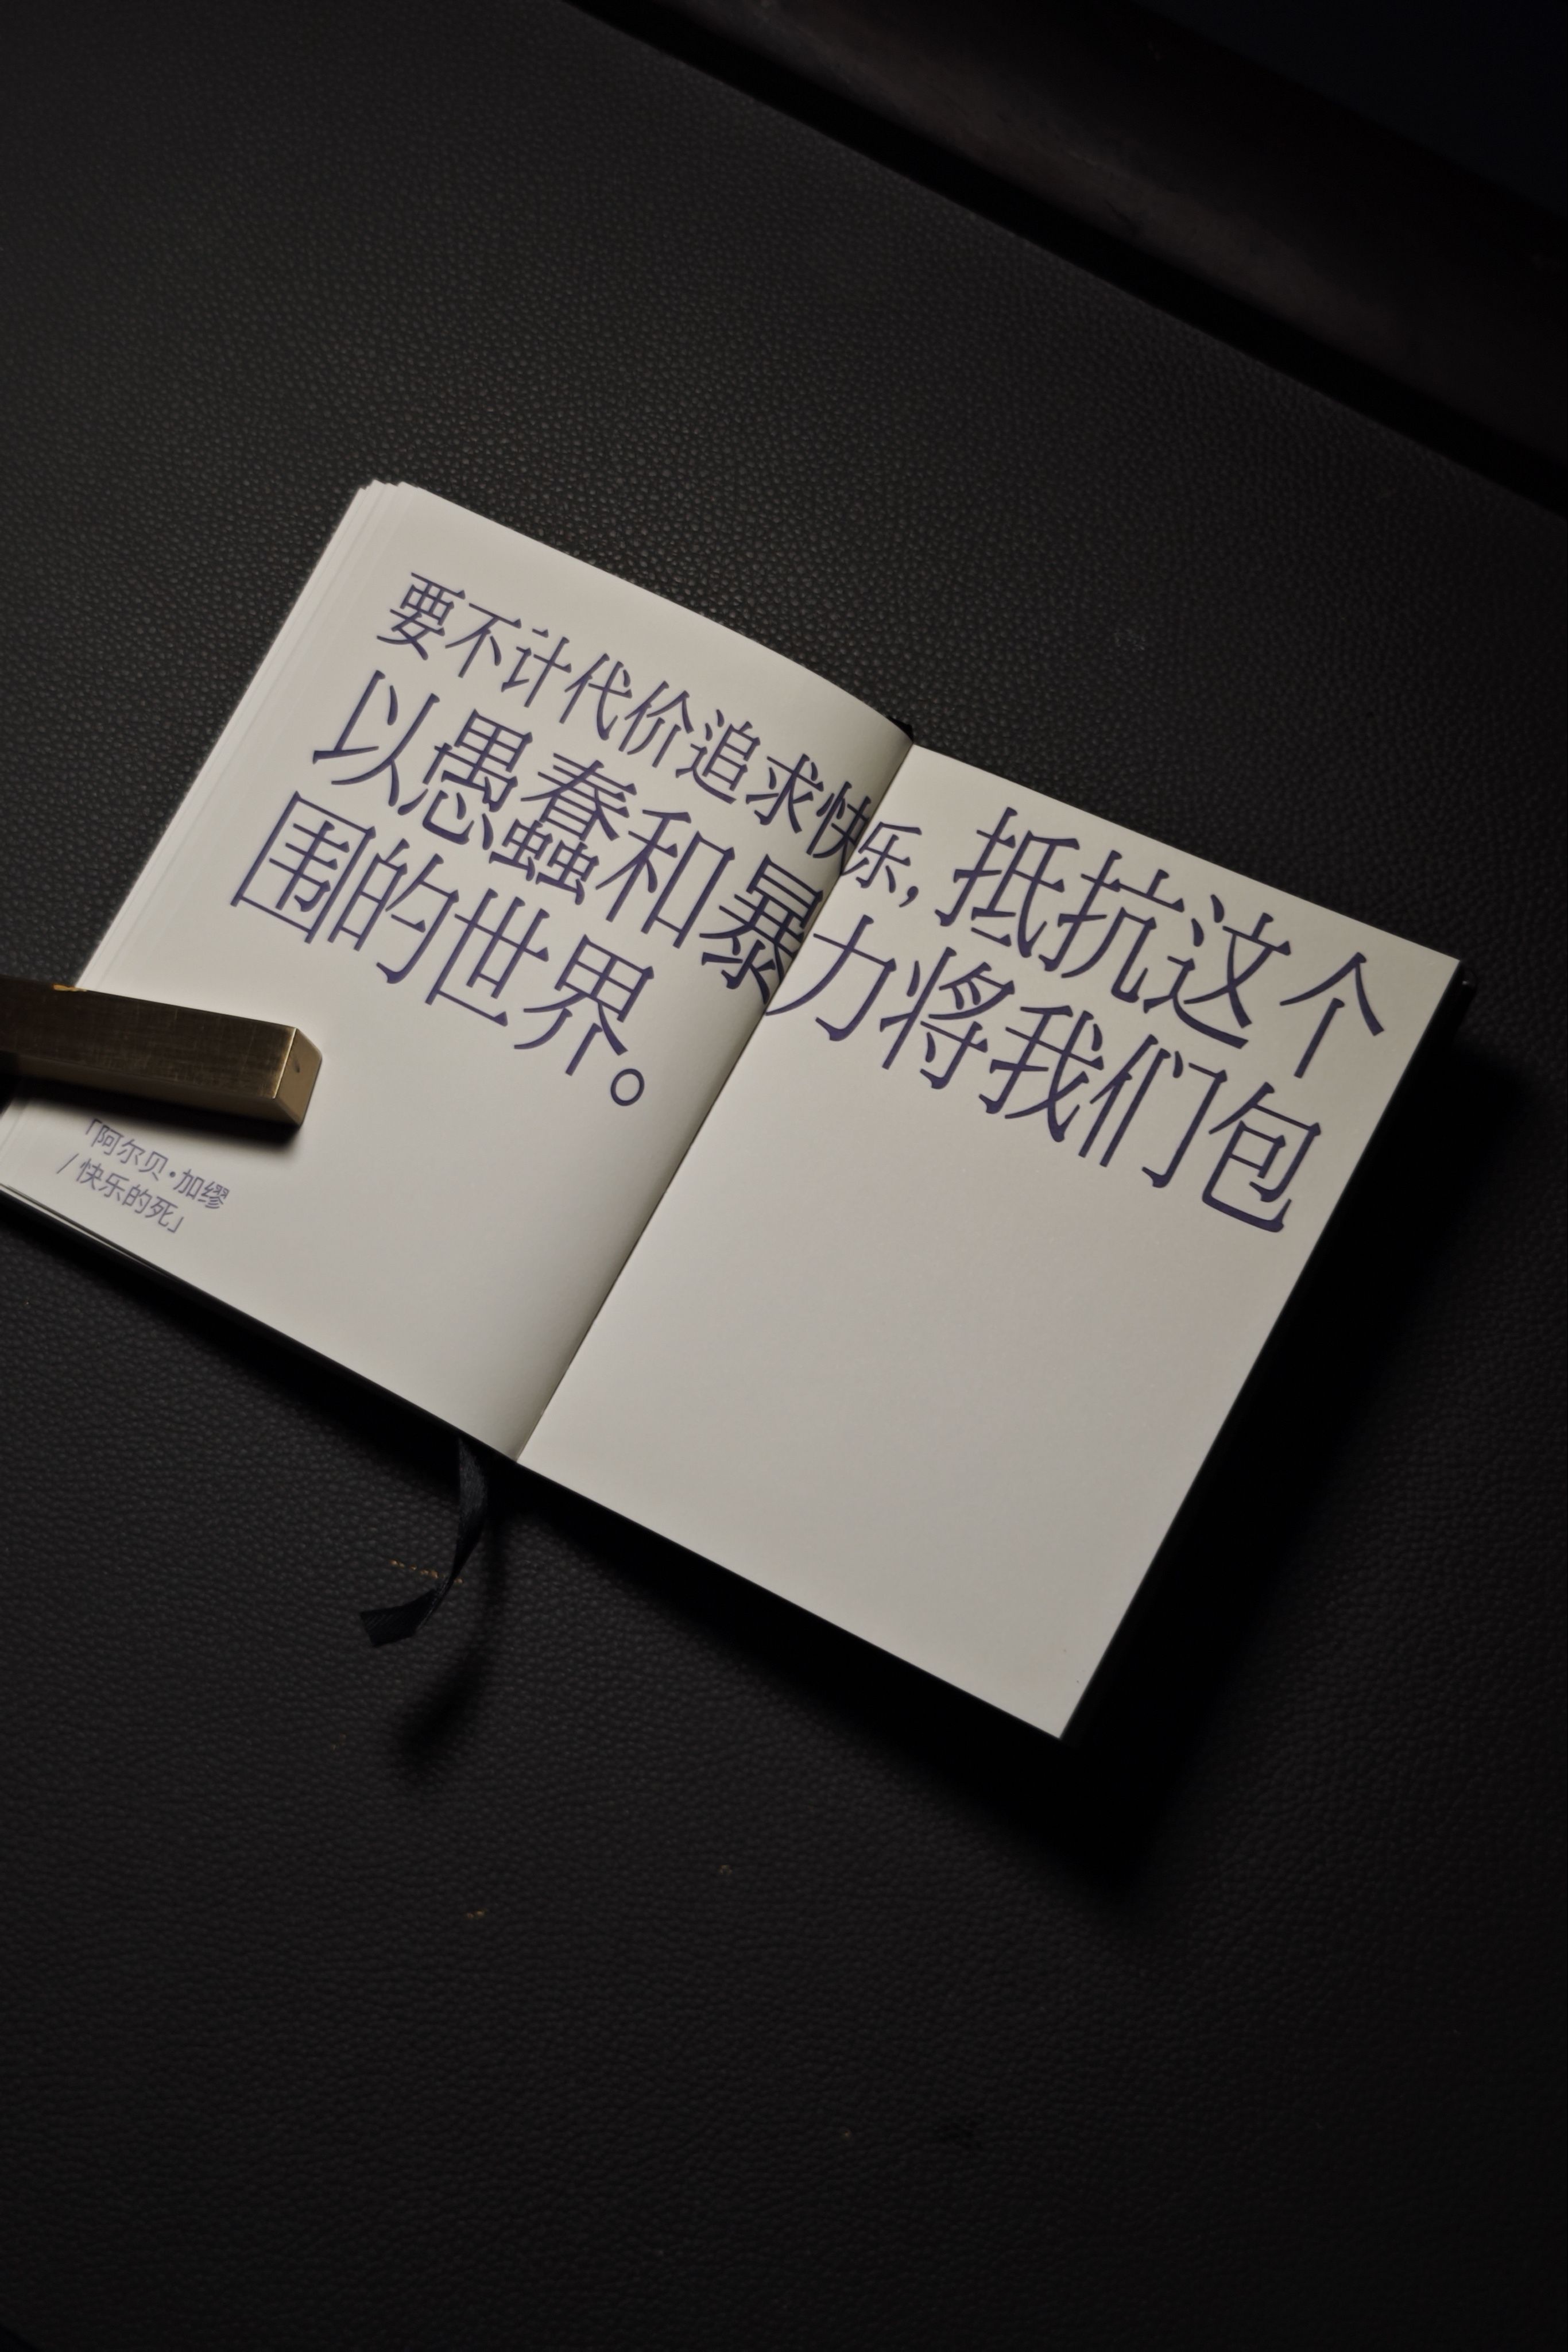 要不计代价追求快乐，抵抗这个
以愚蠢和暴力将我们包
围的世界。
「阿尔贝·加缪
/ 快乐的死」